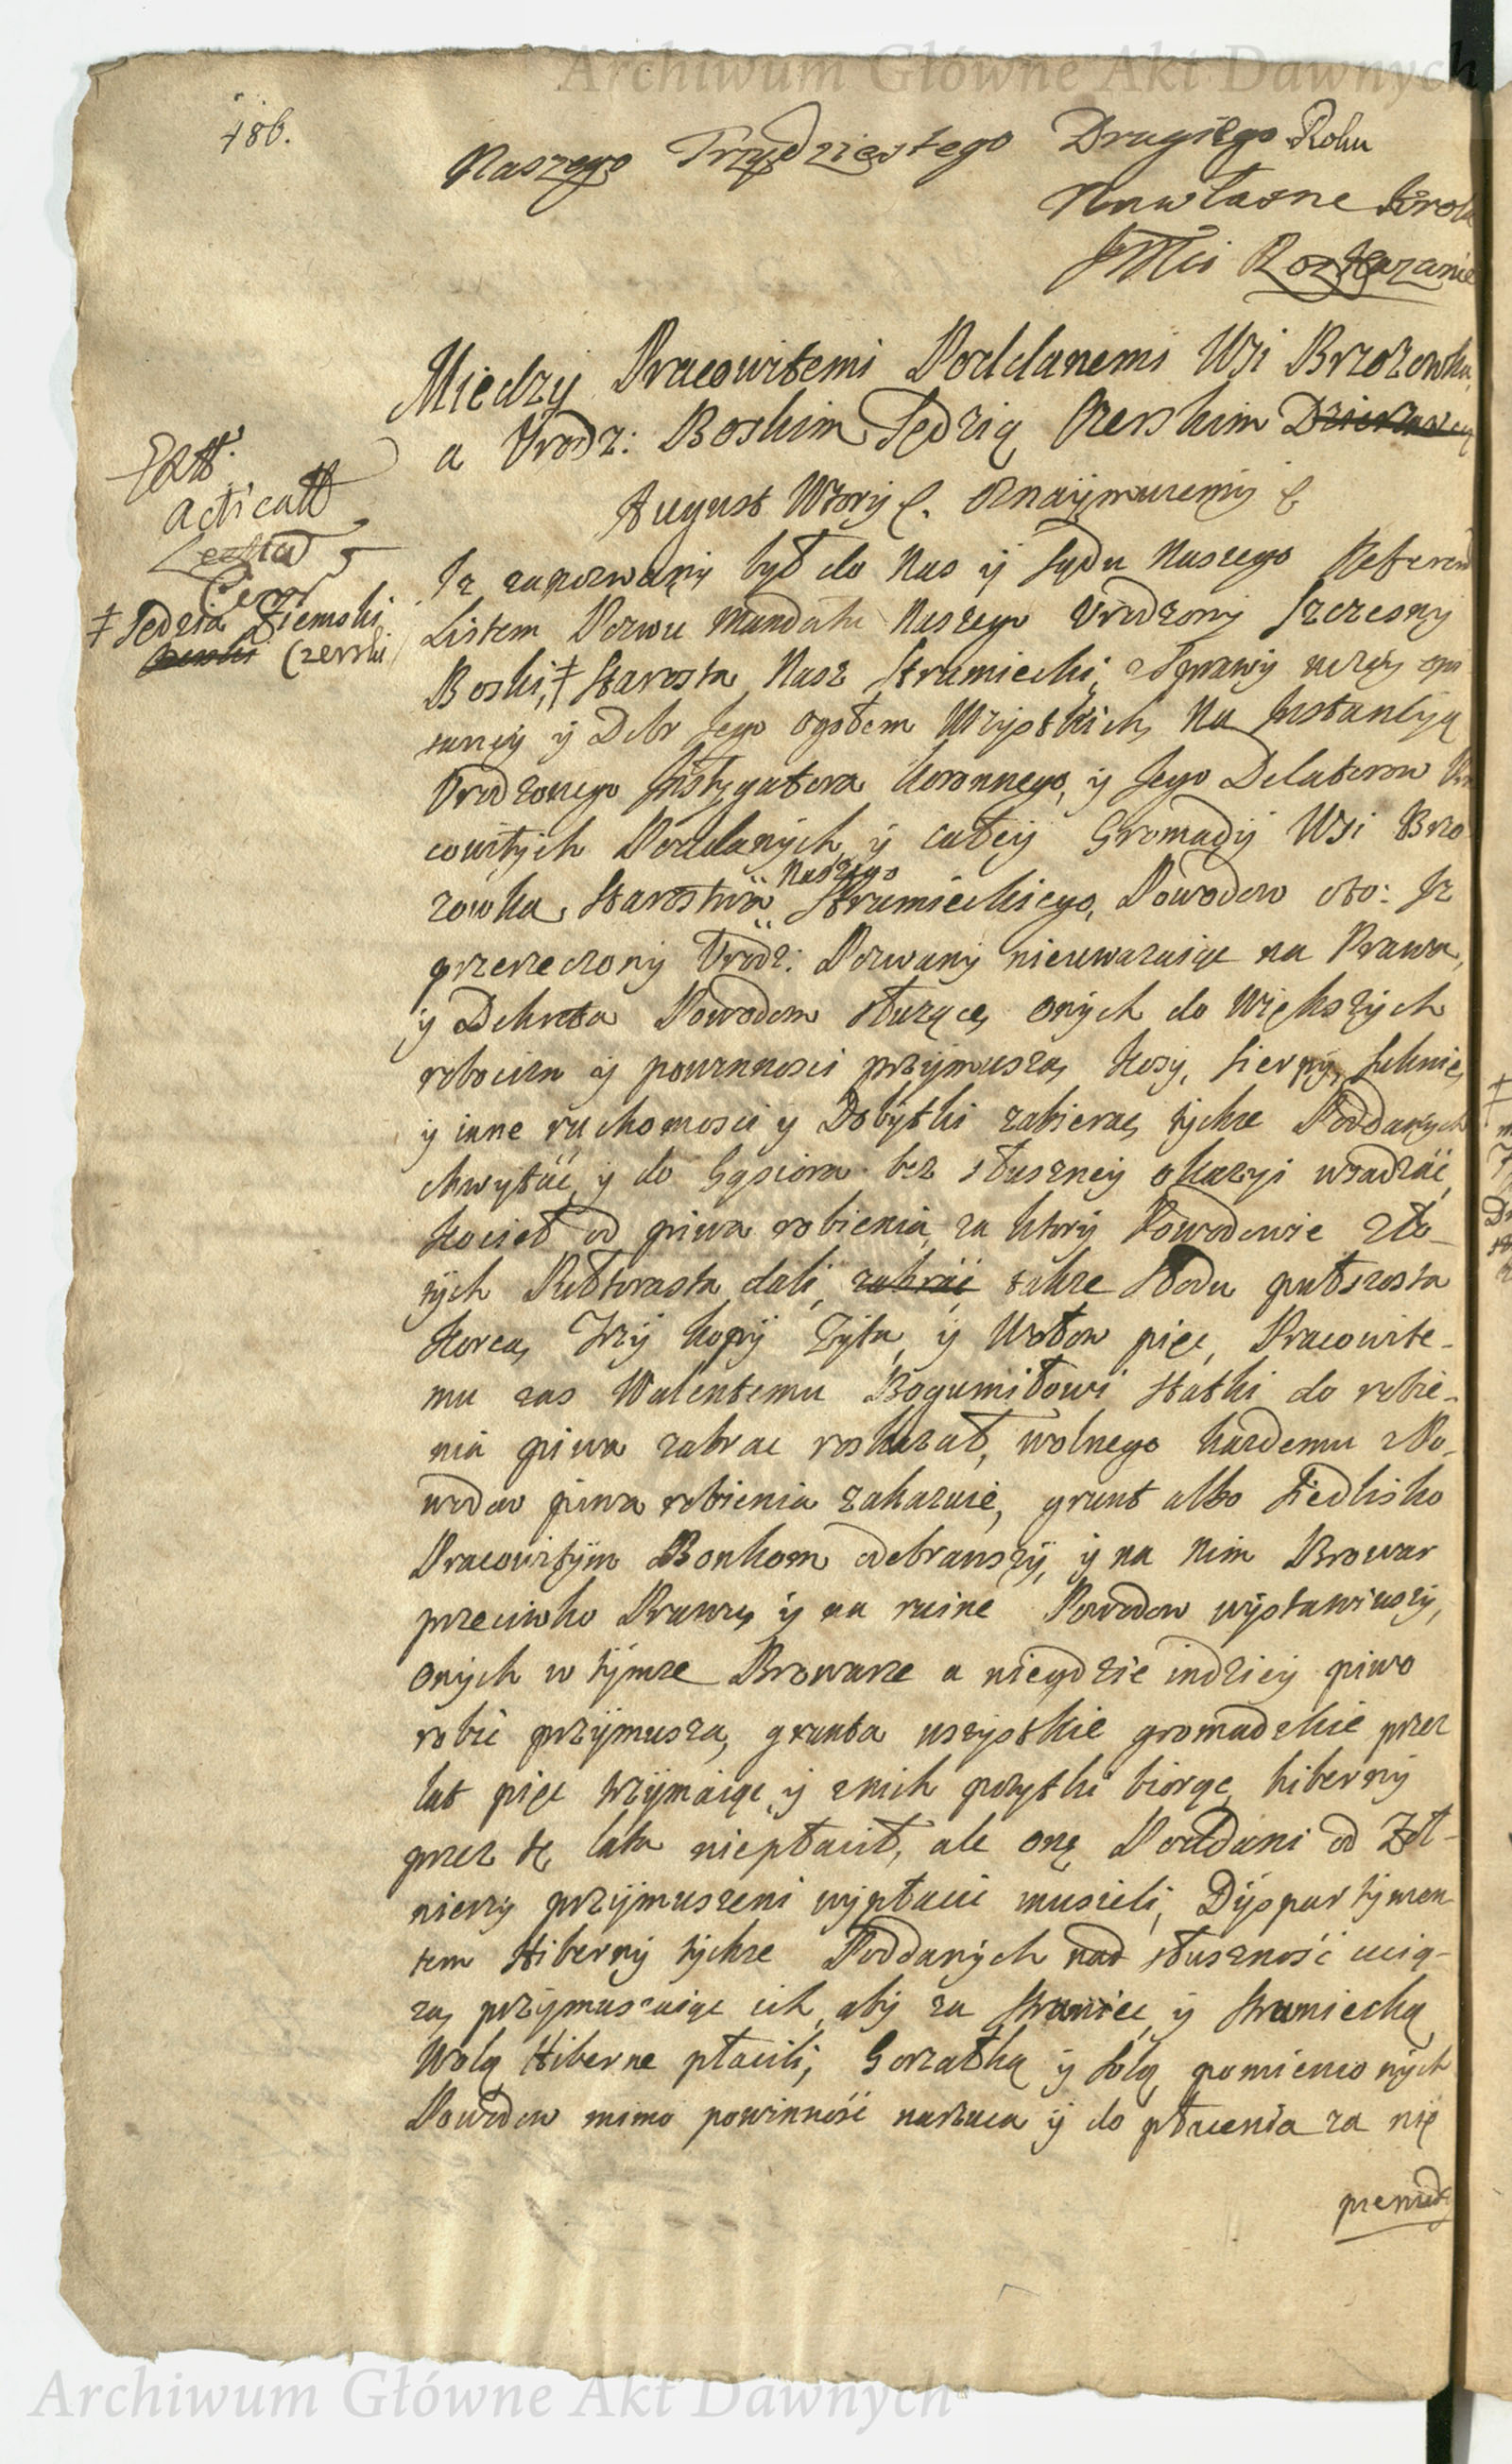 Archiwum Główne Akt Dawnych
186.
Naszego Trzydziestego Drugiego Roku
Na własne Krola
JMci Rozkazanie
Między Pracowitemi Poddanemi Wsi Brzozowka
a Urodz: Boskim Sędzią Czerskim Dzierzawcą
August Wtory &. Oznaymuiemy &
Extt.
acticatt
‡ Sędzia Ziemski
Czerski
Iz zapozwany był do Nas y Sądu Naszego Referend
Listem Pozwu Mandatu Naszego Urodzony Szczesny
Boski, ‡ Starosta Nasz Stramiecki, z sprawy nizey opi
saney y Dobr Jego ogołem Wszystkich, Na Instantyą
Urodzonego Instygatora Koronnego, y Jego Delatorow Pra
cowitych Poddanych y całey Gromady Wsi Brzo
zowka, Starostwa Naszego Stramieckiego, Powodow oto: Iz
przerzeczony Urodz: Pozwany nieuwazaiąc na Prawa,
y Dekreta Powodom słuzące, onych do większych
robocizn y powinnosci przymusza, Kosy, sierpy, suknie,
y inne ruchomosci y Dobytki zabiera, tychze Poddanych
chwytać, y do Gąsiora bez słuszney okazyi wsadzać,
Kocieł od piwa robienia, za ktory Powodowie Zło-
tych Pułtorasta dali, zabrać takze Słodu pułszosta
Korca, Trzy kopy Zyta, y Wołow pięc, Pracowite-
mu zas Walentemu Bogumiłowi statki do robie-
nia piwa zabrac roskazał, wolnego kazdemu z Po-
wodow piwa robienia zakazuie, grunt albo siedlisko
Pracowitym Bonkom odebrawszy, y na nim Browar
przeciwko Prawu y na ruinę Powodow wystawiwszy,
onych w tymze Browarze a niegdzie indziey piwo
robić przymusza, grunta wszystkie gromadzkie przez
lat pięc trzymaiąc y z nich pozytki biorąc, hiberny
przez te lata niepłacił, ale onę Poddani od Zoł-
nierzy przymuszeni wypłacic musieli, Dyspartymen
tem Hiberny tychze Poddanych nad słuszność ucią-
za, przymuszaiąc ich, aby za Stramiec y Stramiecką
Wolą Hibernę płacili, Gorzałkę y solą pomienionych
Powodow mimo powinność narzuca y do płacenia za nię
pieniędz
Archiwum Główne Akt Dawnych